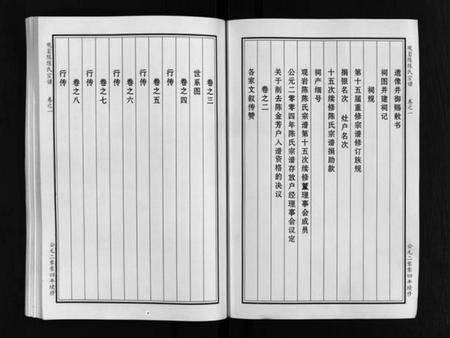 遗像并御赐敕书
祠图并建祠记
祠规
第十五届重修宗谱修订族规
捐银名次 灶户名次
十五次续修陈氏宗谱捐助款
祠产细号
观岩陈陈氏宗谱第十五次续修董理事会成员
公元二零零四年陈氏宗谱存放户经理事会议定
关于削去陈金芳户入谱资格的决议
卷之二
各家文叙传赞
公元二零零四年续修
观岩陈陈氏宗谱 卷之一
卷之三
世系图
卷之四
行传
卷之五
行传
卷之六
行传
卷之七
行传
卷之八
行传
公元二零零四年续修